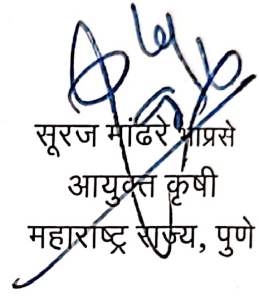 सूरज मांढरे भाप्रसे
आयुक्त कृषी
महाराष्ट्र राज्य, पुणे